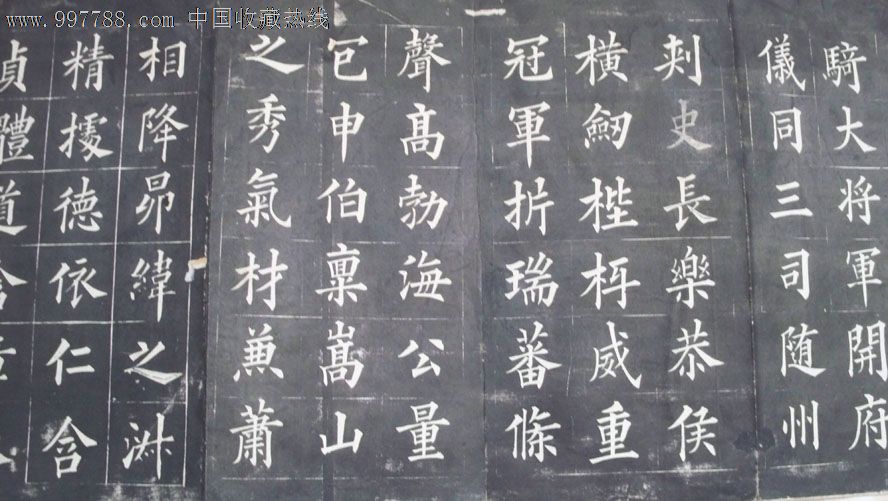 www.997788.com 中国收藏热线
騎大将軍開府
儀同三司随州
刾史長樂恭侯
橫劒梐枑威重
冠軍析瑞蕃條
聲髙勃海公量
包申伯稟嵩山
之秀氣材兼蕭
相降昴緯之淑
精據德依仁含
貞體道